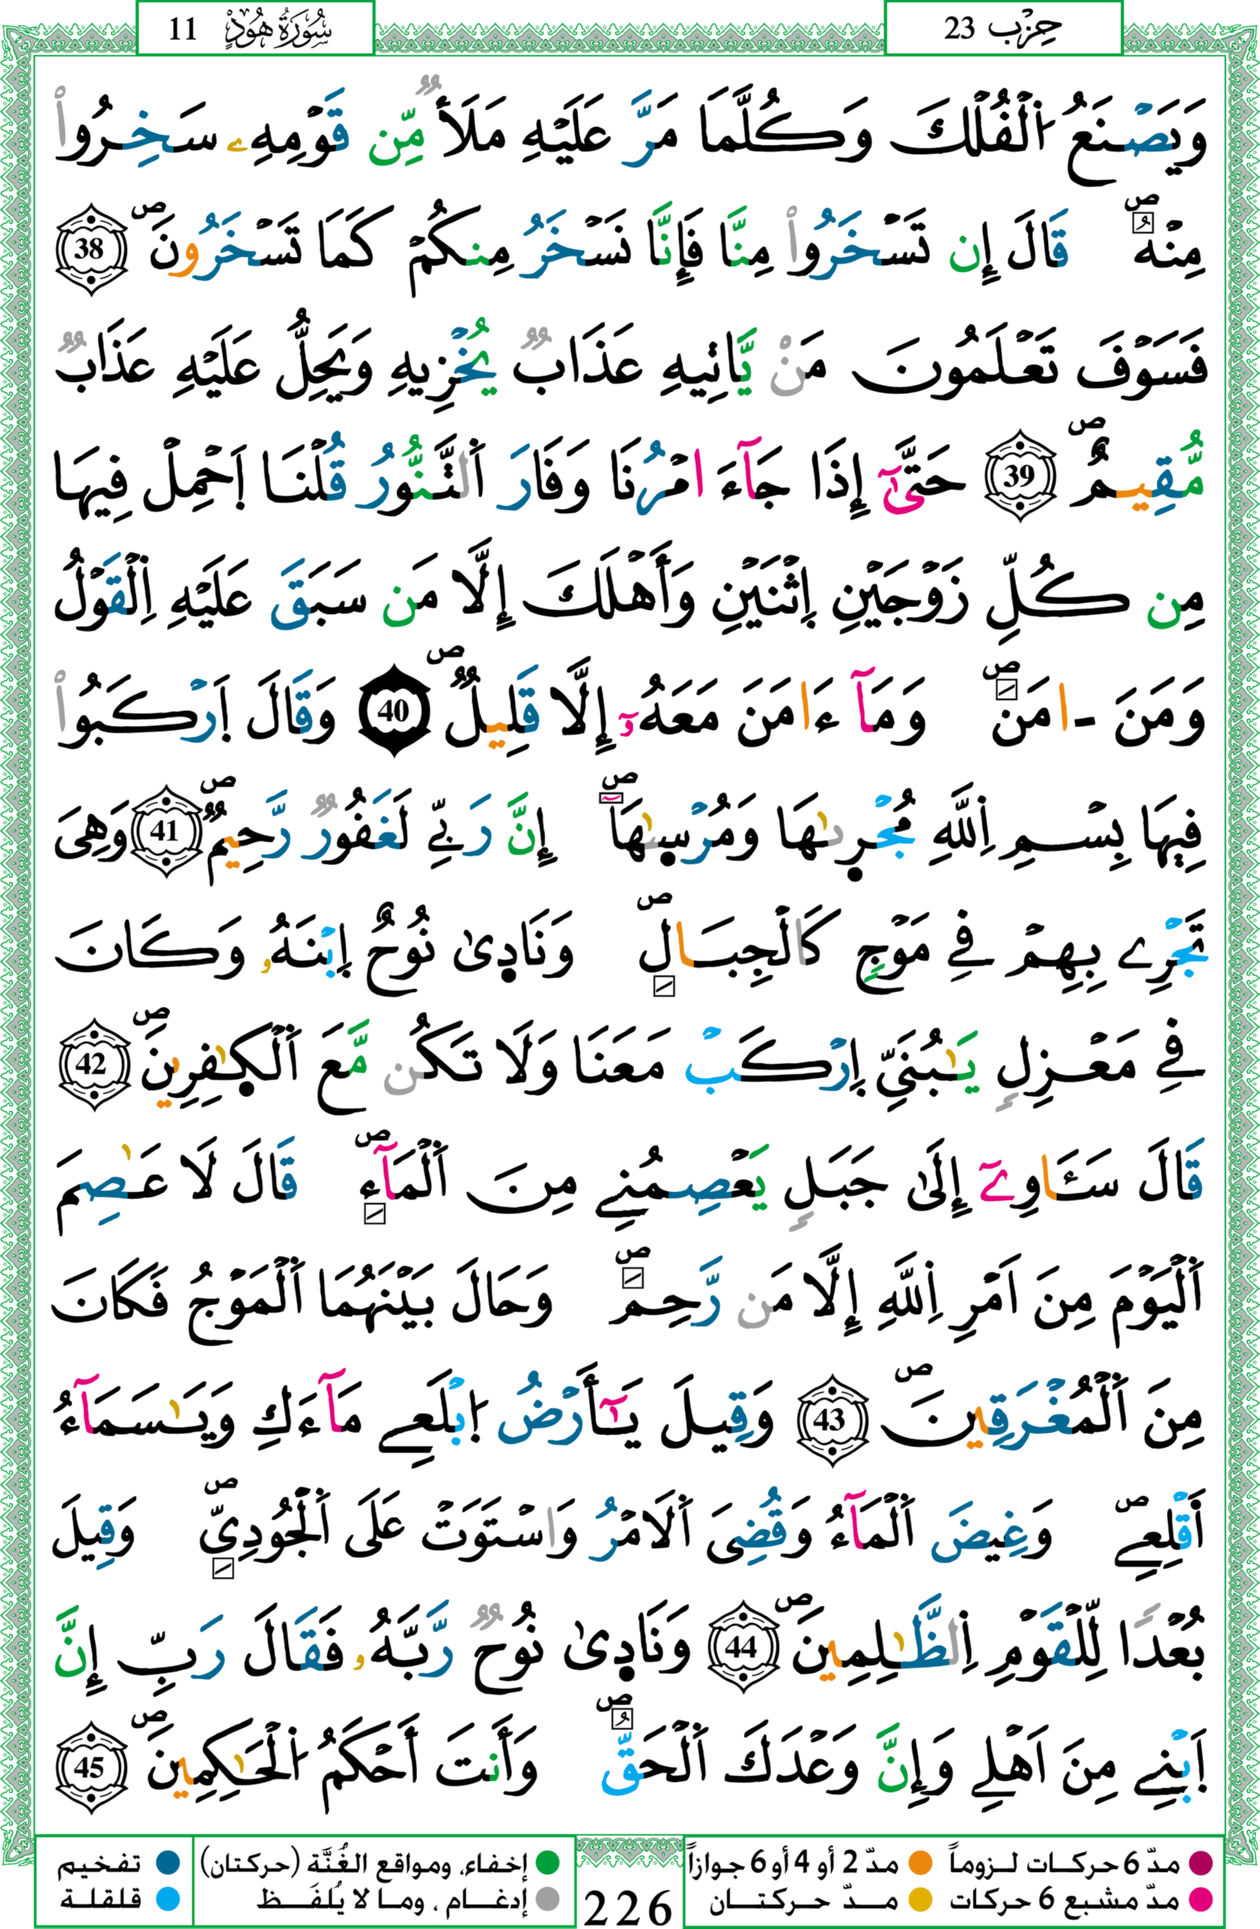 حِزْب 23
سُورَةُ هُودٍ 11
وَيَصْنَعُ اُ۬لْفُلْكَ وَكُلَّمَا مَرَّ عَلَيْهِ مَلَأٌ مِّن قَوْمِهِۦ سَخِرُواْ
مِنْهُ ص قَالَ إِن تَسْخَرُواْ مِنَّا فَإِنَّا نَسْخَرُ مِنكُمْ كَمَا تَسْخَرُونَ ص 38
فَسَوْفَ تَعْلَمُونَ مَنْ يَّاتِيهِ عَذَابٌ يُخْزِيهِ وَيَحِلُّ عَلَيْهِ عَذَابٌ
مُّقِيمٌ ص 39 حَتَّىٰٓ إِذَا جَآءَ امْرُنَا وَفَارَ اَ۬لتَّنُّورُ قُلْنَا اَحْمِلْ فِيهَا
مِن كُلِّ زَوْجَيْنِ اِثْنَيْنِ وَأَهْلَكَ إِلَّا مَن سَبَقَ عَلَيْهِ اِ۬لْقَوْلُ
وَمَنَ ـ امَنَ ص وَمَآ ءَامَنَ مَعَهُۥٓ إِلَّا قَلِيلٌ ص 40 وَقَالَ اَ۪رْكَبُواْ
فِيهَا بِسْمِ اِ۬للَّهِ مُجْر۪ىٰهَا وَمُرْسٜىٰهَآ ص إِنَّ رَبِّے لَغَفُورٌ رَّحِيمٌ ص 41 وَهِىَ
تَجْرِے بِهِمْ فِے مَوْجٍ كَالْجِبَالِ ص وَنَادٜىٰ نُوحٌ اِ۪بْنَهُۥ وَكَانَ
فِے مَعْزِلٍ يَٰبُنَيِّ اِ۪رْكَب مَّعَنَا وَلَا تَكُن مَّعَ اَ۬لْكٰٜفِرِينَ ص 42
قَالَ سَـَٔاوِےٓ إِلَىٰ جَبَلٍ يَعْصِمُنِے مِنَ اَ۬لْمَآءِ ص قَالَ لَا عَٰصِمَ
اَ۬لْيَوْمَ مِنَ اَمْرِ اِ۬للَّهِ إِلَّا مَن رَّحِمَ ص وَحَالَ بَيْنَهُمَا اَ۬لْمَوْجُ فَكَانَ
مِنَ اَ۬لْمُغْرَقِينَ ص 43 وَقِيلَ يَٰٓأَرْضُ اُ۪بْلَعِے مَآءَكِ وَيَٰسَمَآءُ
اَ۬قْلِعِے ص وَغِيضَ اَ۬لْمَآءُ وَقُضِىَ اَ۬لَامْرُ وَاسْتَوَتْ عَلَى اَ۬لْجُودِيِّ ص وَقِيلَ
بُعْدًا لِّلْقَوْمِ اِ۬لظَّٰلِمِينَ ص 44 وَنَادٜىٰ نُوحٌ رَّبَّهُۥ فَقَالَ رَبِّ إِنَّ
اَ۪بْنِے مِنَ اَهْلِے وَإِنَّ وَعْدَكَ اَ۬لْحَقُّ ص وَأَنتَ أَحْكَمُ اُ۬لْحَٰكِمِينَ ص 45
مدّ 6 حركات لـزوماً مدّ 2 أو 4 أو 6 جوازاً
مدّ مشبع 6 حركات مــدّ حركتــان
226
إخفاء، ومواقع الغُنَّة (حركتان)
إدغــام ، ومـا لا يُلفَــظ
تفخيم
قلقلة